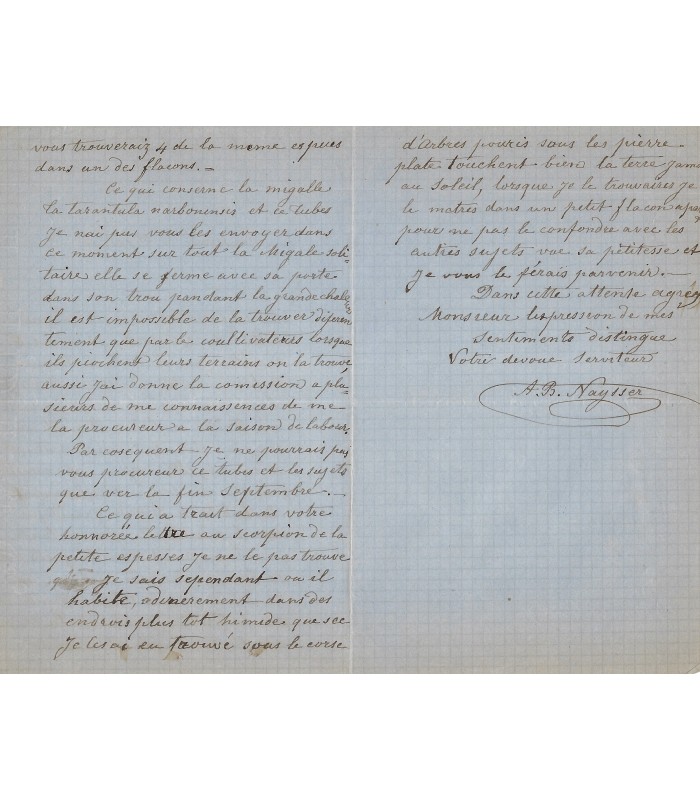 vous trouveraiz 4 de la mome espues
dans un des flacons.—
Ce qui conserne la migalle
la tarantula narbonensis et ce tubes
Je nai pus vous les envoyer dans
ce moment sur tout la Migale soli=
taire elle se ferme avec sa porte
dans son trou pandant la grande chaleur
il est impossible de la trouver diferen
tement que par le coultivateries lorsque
ils piochent leurs terrains on la trouve
aussi Jai donne la comission a plu=
sieurs de me connaissences de me
la procureur a la saison de labour.
Par cosequent Je ne pourrais pas
vous procureur ce tubes et les sujets
que ver la fin septembre.—
Ce qui a trait dans votre
honnorée lettre au scorpion de la
petite espesses Je ne le pas trouve
Je sais sependant ou il
habite, adinerement dans des
endrois plus tot himide que sec
Je les ai eu trouvé sous le corse
d'Arbres pouris sous les pierre
plate touchent bien la terre Jama
au soleil, lorsque Je le trouvaires Je
le matres dans un petit flacon apar
pour ne pas le confondre avec les
autres sujets vue sa petitesse et
Je vous le ferais parvenir.—
Dans cette attente agrég
Monsieur lexpression de mes
sentiments distingue
Votre devoue serviteur
A. B. Naysser